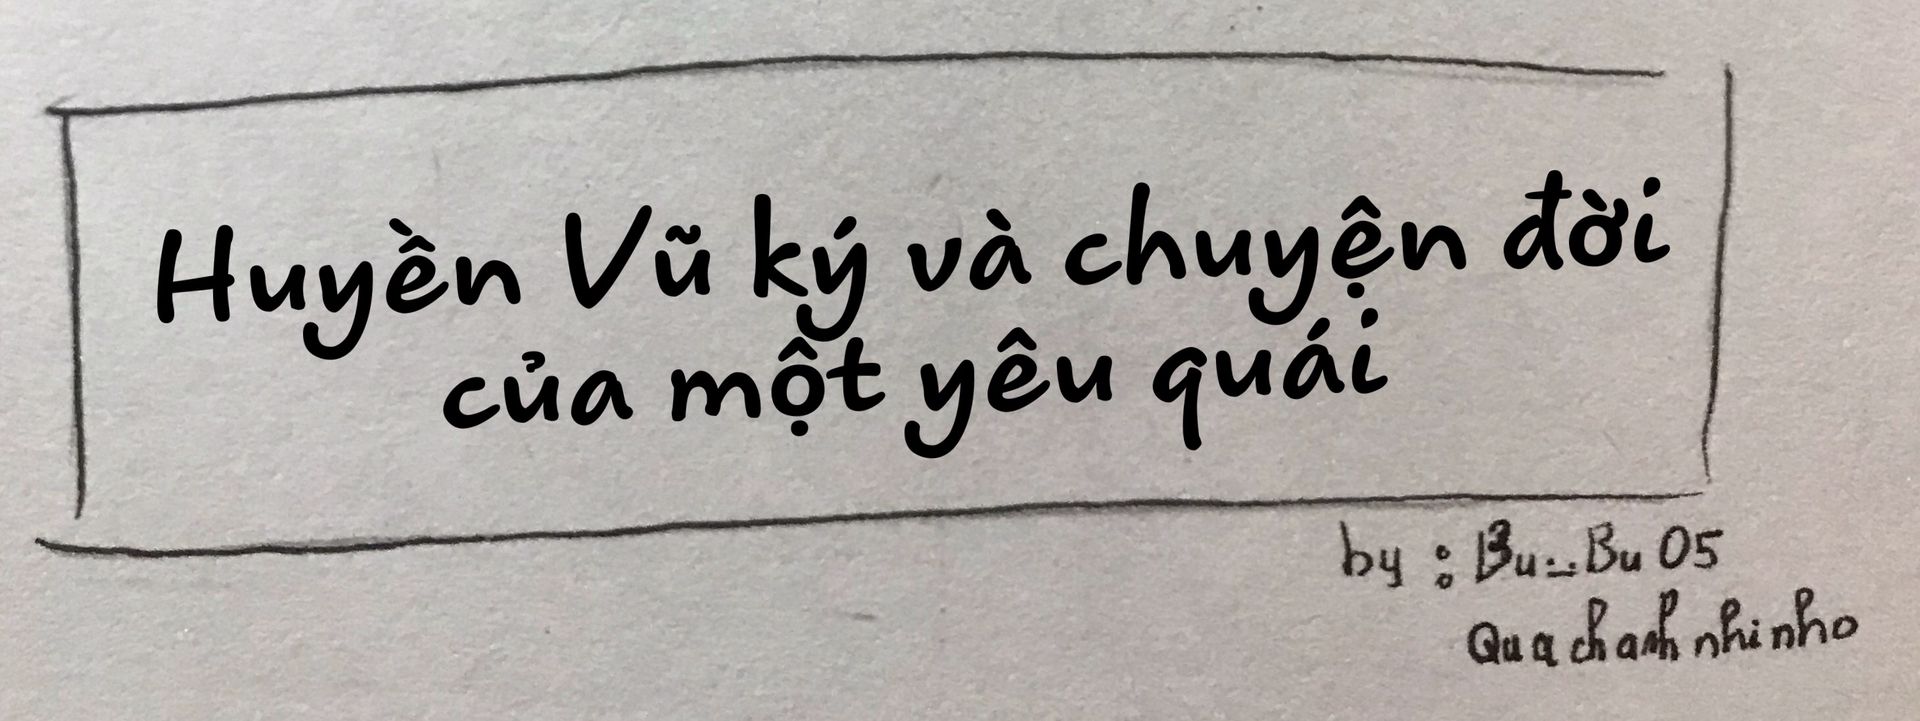 Huyền Vũ ký và chuyện đời
của một yêu quái
by : Bu_Bu 05
Quachanhnhinho